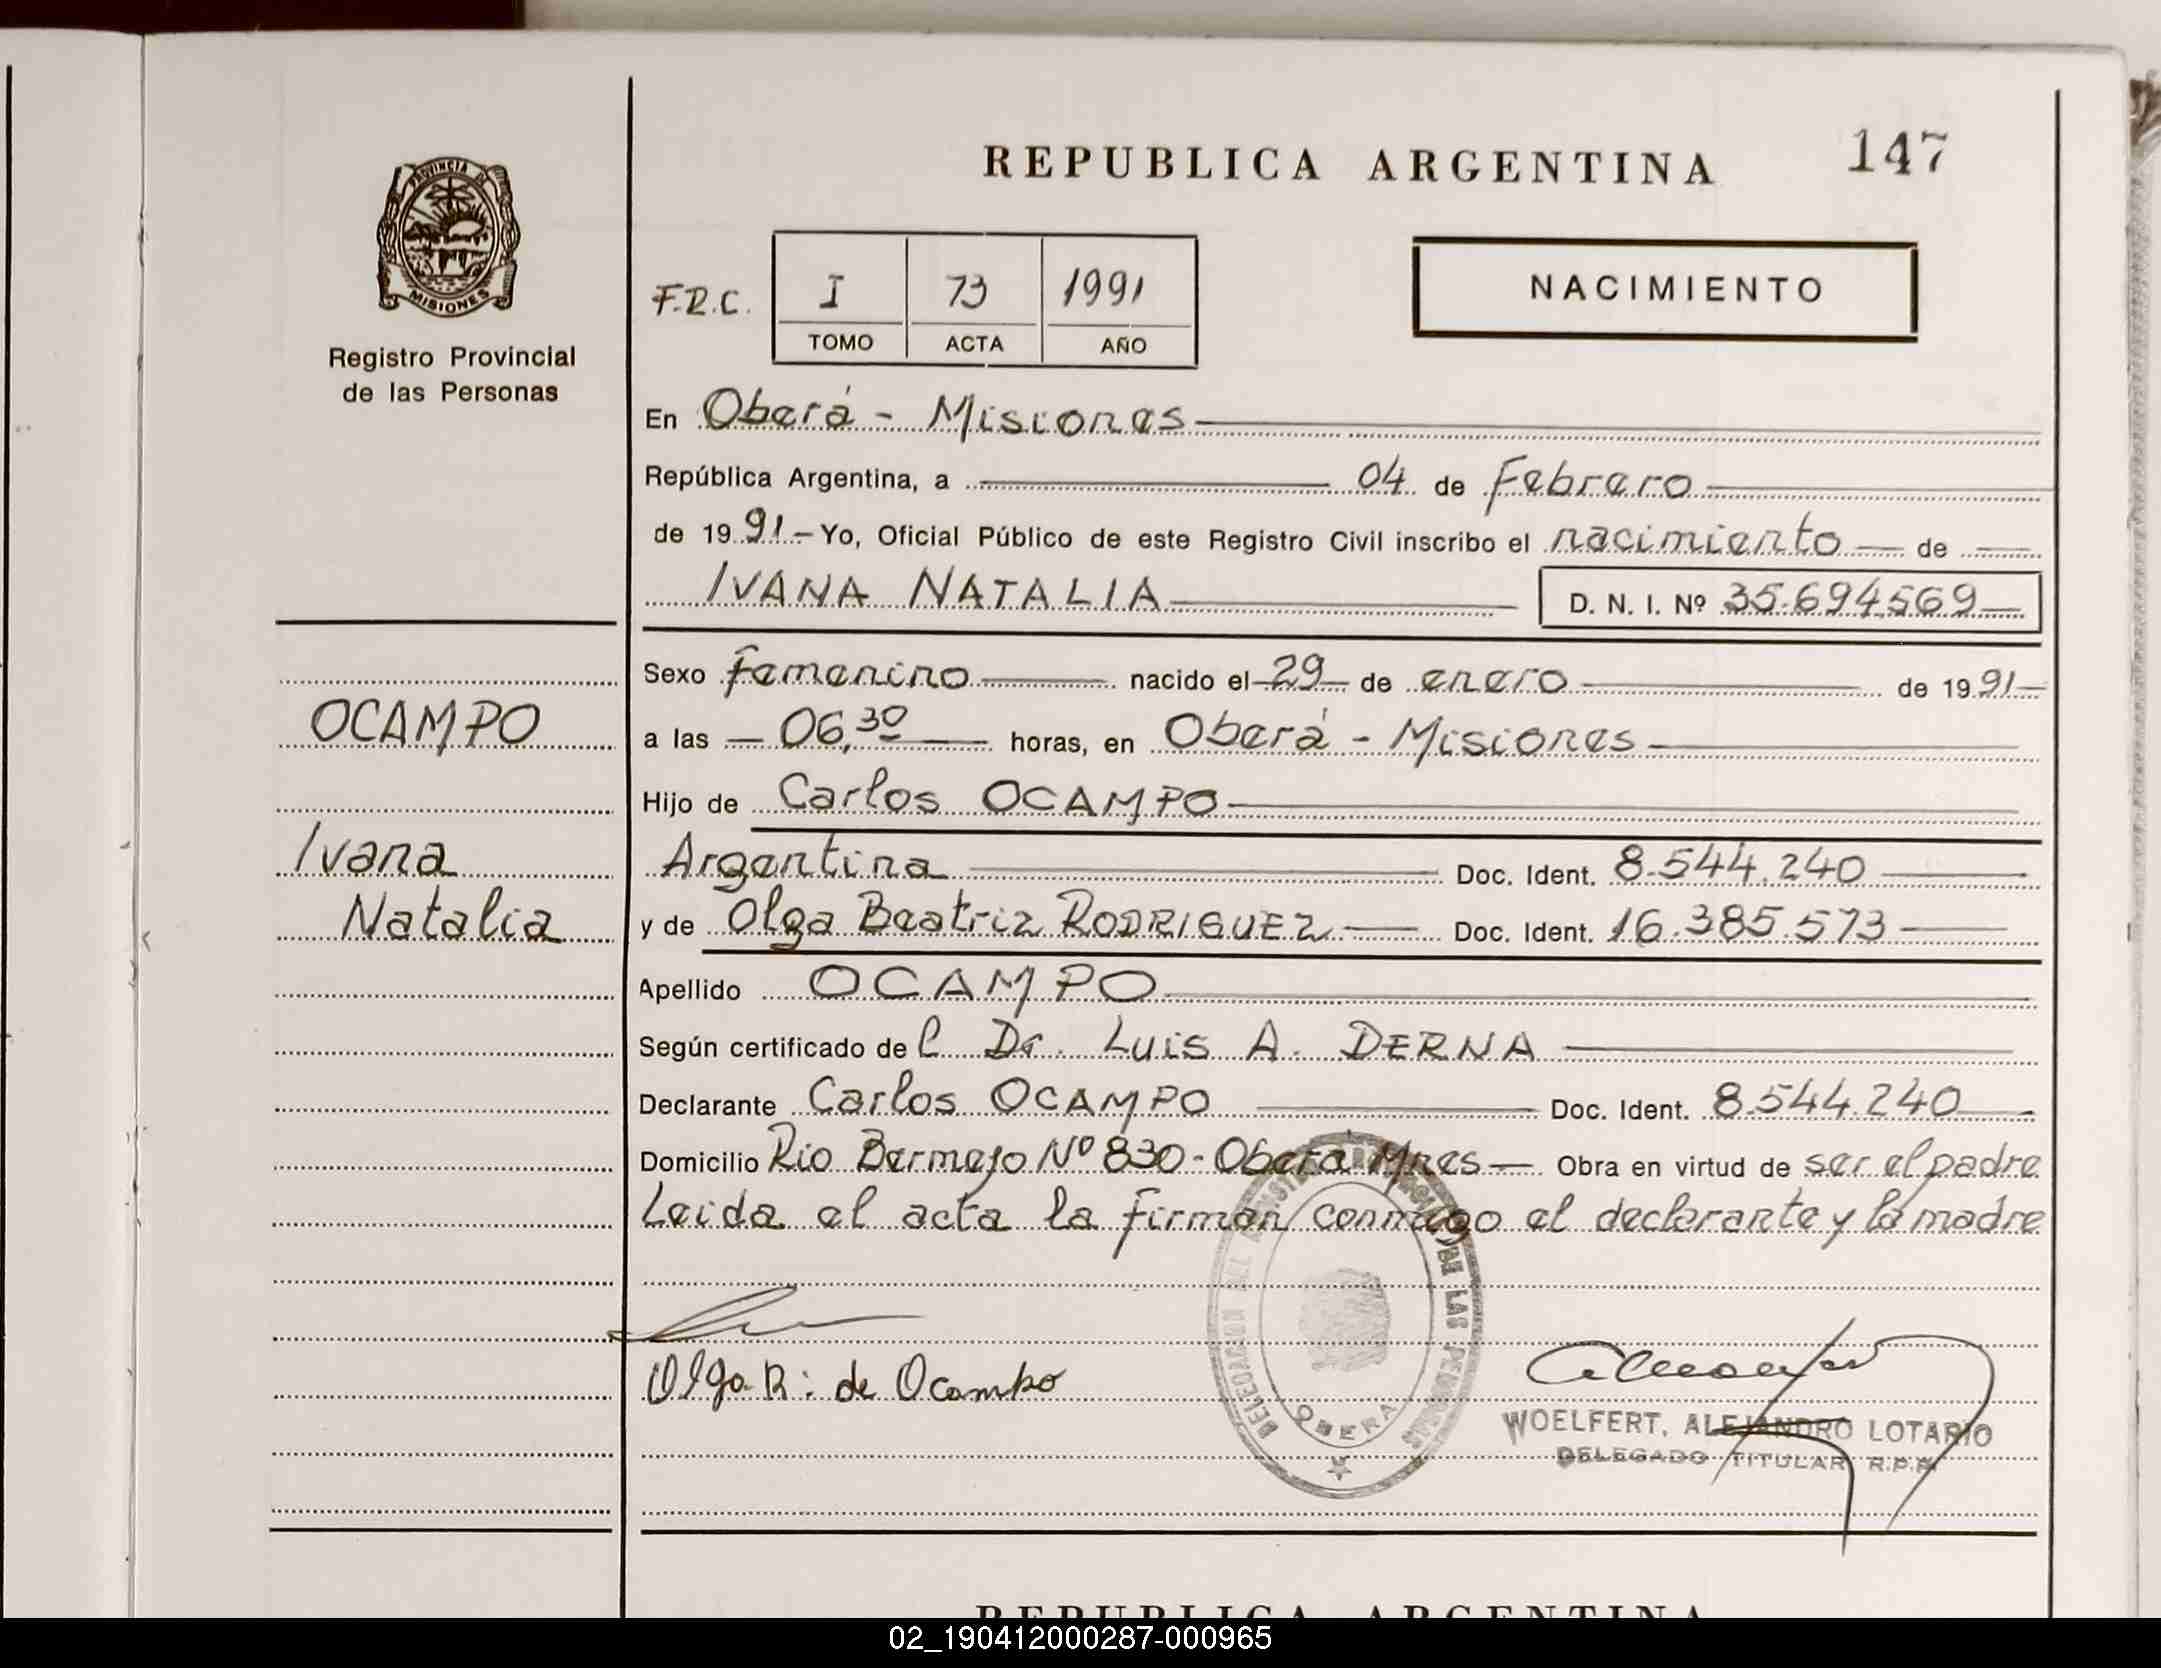 REPUBLICA ARGENTINA
147
PROVINCIA DE
MISIONES
Registro Provincial
de las Personas
F.R.C.
I 73 1991
TOMO ACTA AÑO
NACIMIENTO
En Oberá - Misiones
República Argentina, a 04 de Febrero
de 1991 - Yo, Oficial Público de este Registro Civil inscribo el nacimiento de
IVANA NATALIA D. N. I. Nº 35.694.569
Sexo Femenino nacido el 29 de enero de 1991
OCAMPO
a las 06,30 horas, en Oberá - Misiones
Hijo de Carlos OCAMPO
Ivana
Argentina Doc. Ident. 8.544.240
Natalia
y de Olga Beatriz RODRIGUEZ Doc. Ident. 16.385.573
Apellido OCAMPO
Según certificado del Dr. Luis A. DERNA
Declarante Carlos OCAMPO Doc. Ident. 8.544.240
Domicilio Rio Bermejo Nº 830 - Oberá Mnes Obra en virtud de ser el padre
Leida el acta la firman conmigo el declarante y la madre
Olga R. de Ocampo
DE LAS PERSONAS
OBERA
WOELFERT, ALEJANDRO LOTARIO
DELEGADO TITULAR R.P.P.
REPUBLICA ARGENTINA
02_190412000287-000965